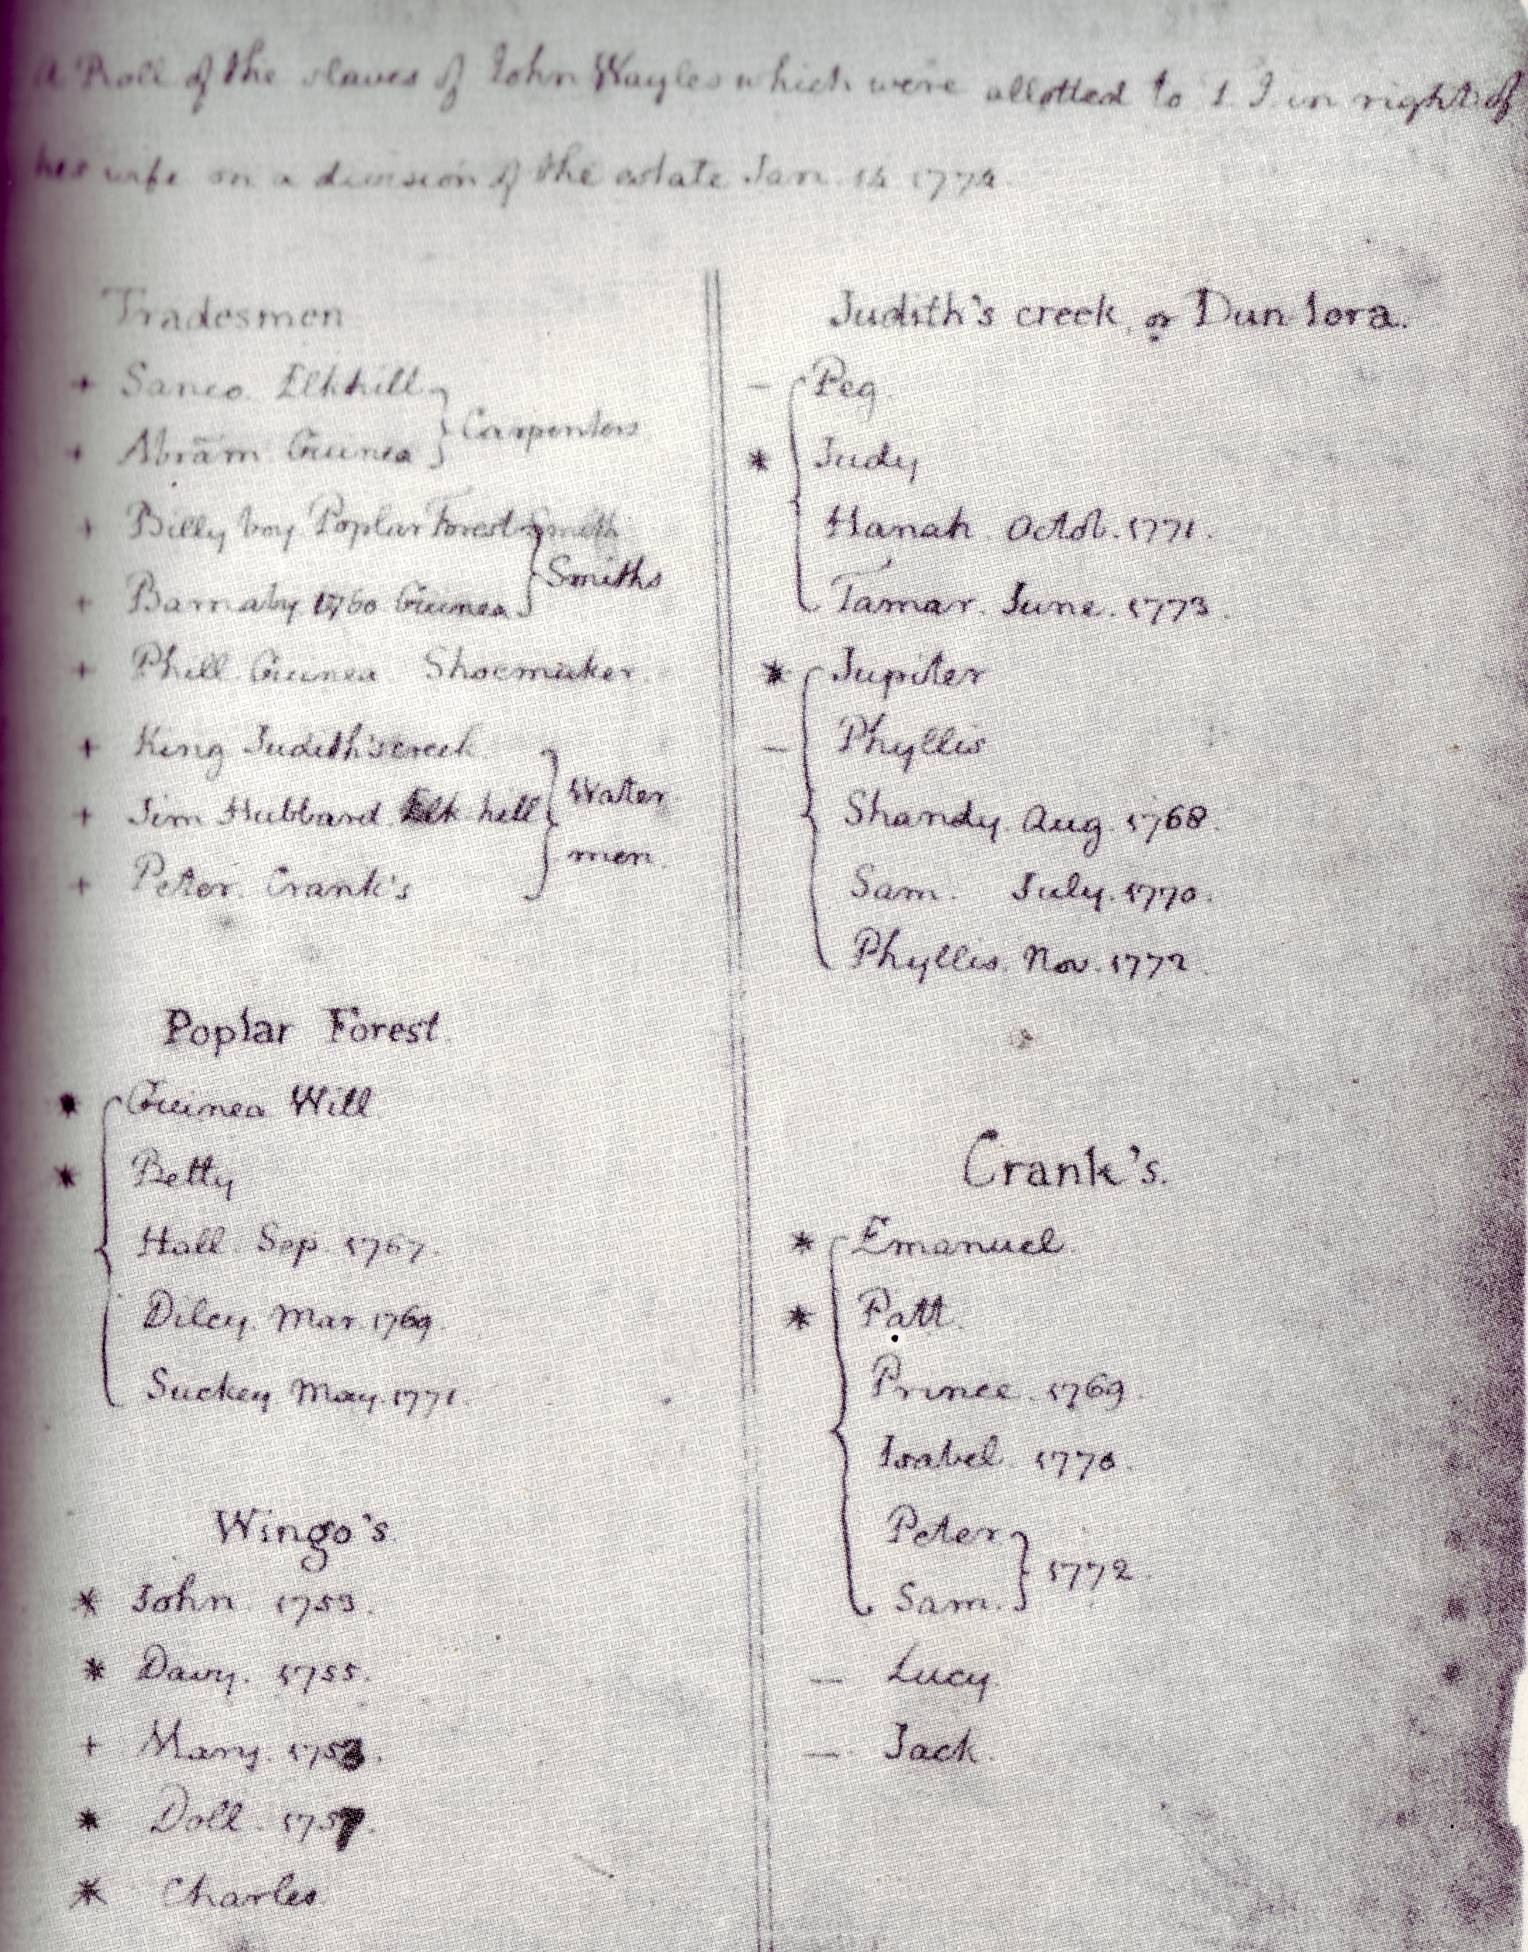 A Roll of the slaves of John Wayles which were allotted to T. J. in right of
his wife on a division of the estate Jan. 14 1774
Tradesmen
+ Sanco. Elkhill
+ Abram. Guinea } Carpenters
+ Billy boy. Poplar Forest
+ Barnaby 1760 Guinea } Smiths
+ Phill. Guinea Shoemaker.
+ King Judith's creek.
+ Jim Hubbard. Elk hill } Water
men.
+ Peter. Crank's
Poplar Forest.
* Guinea Will
* Betty
Hall. Sep. 1767.
Dilcy. Mar. 1769.
Suckey May. 1771.
Wingo's.
* John. 1753.
* Davy. 1755.
+ Mary. 1753.
* Doll. 1757.
* Charles.
Judith's creek, or Dun-lora.
– Peg.
* Judy
Hanah. Octob. 1771.
Tamar. June. 1773.
* Jupiter
– Phyllis
Shandy. Aug. 1768.
Sam. July. 1770.
Phyllis. Nov. 1772.
Crank's.
* Emanuel.
* Patt.
Prince. 1769.
Isabel. 1770.
Peter
Sam. } 1772.
– Lucy.
– Jack.